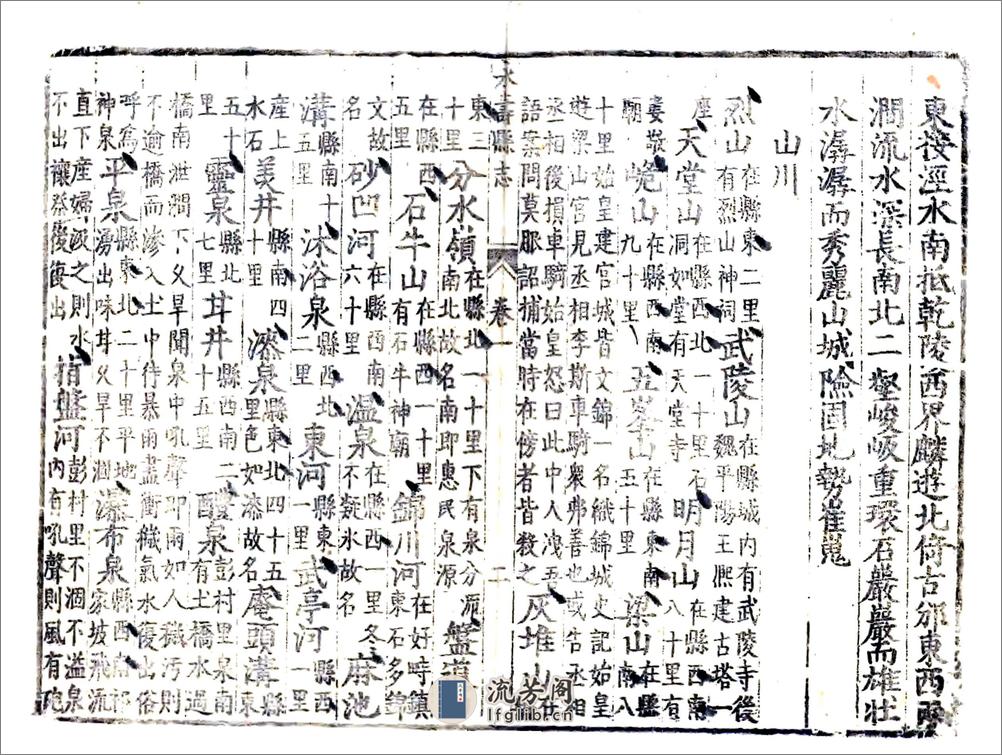 東接涇水南抵乾陵西界麟遊北倚古邠東西兩
澗流水深長南北二壑峻岐重環石巖巖而雄壯
水潺潺而秀麗山城險固地勢崔嵬
山川
烈山在縣東二里有烈山神祠武陵山在縣城内有武陵寺後魏平陽王熙建古塔一
座天堂山在縣西北一十里石洞如堂有天堂寺明月山在縣西南八十里有
婁敬廟山在縣西南九十里五峯山在縣東南五十里梁山在縣南八
十里始皇建宫城皆文錦一名織錦城史記始皇遊梁山宫見丞相李斯車騎衆弗善也或告丞相
丞相後損車騎始皇怒曰此中人洩吾語案問莫服詔捕當時在傍者皆殺之灰堆山在
永壽縣志 卷一 二
東三十里分水嶺在縣北一十里下有泉分南北故名南即惠民泉源盤道
在縣西五里石牛山在縣西一十里有石牛神廟錦川河在好畤鎮東石多錦
文故名砂凹河在縣西南六十里温泉在縣西一里冬不凝氷故名麻池
溝縣南十五里沐浴泉縣西北二里東河縣東一里武亭河縣西一
產上水石美井縣南四十里漆泉縣東北四十五里色如漆故名庵頭溝縣東
五十里靈泉縣北七里甘井縣西南二十五里醴泉彭村里泉南有土橋水過
橋南泄澗下久旱聞泉中吼聲即雨如人穢污則不逾橋而滲入土中待暴雨盡衝穢氣水復出俗
呼爲神泉平泉縣東北二十里平地湧出味甘久旱不涸瀑布泉縣西南祁家坡飛流
直下産婦汲之則水不出禳祭後復出稍盤河彭村里不涸不溢泉内有吼聲則風有砲
流芳阁
lfglib.cn